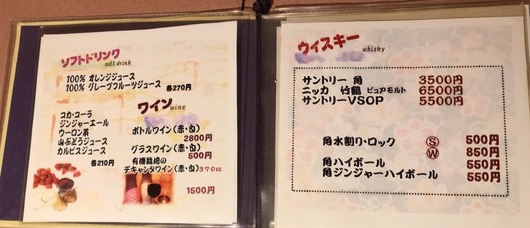 ソフトドリンク
soft drink
100% オレンジジュース
100% グレープフルーツジュース
各270円
コカ・コーラ
ジンジャーエール
ウーロン茶
山ぶどうジュース
カルピスジュース
各210円
ワイン
wine
ボトルワイン(赤・白)
2800円
グラスワイン(赤・白)
500円
有機栽培の
デキャンタワイン(赤・白)370cc
1500円
ウィスキー
whisky
サントリー 角 3500円
ニッカ 竹鶴 ピュアモルト 6500円
サントリーVSOP 5500円
角水割り・ロック Ⓢ 500円
Ⓦ 850円
角ハイボール 550円
角ジンジャーハイボール 550円